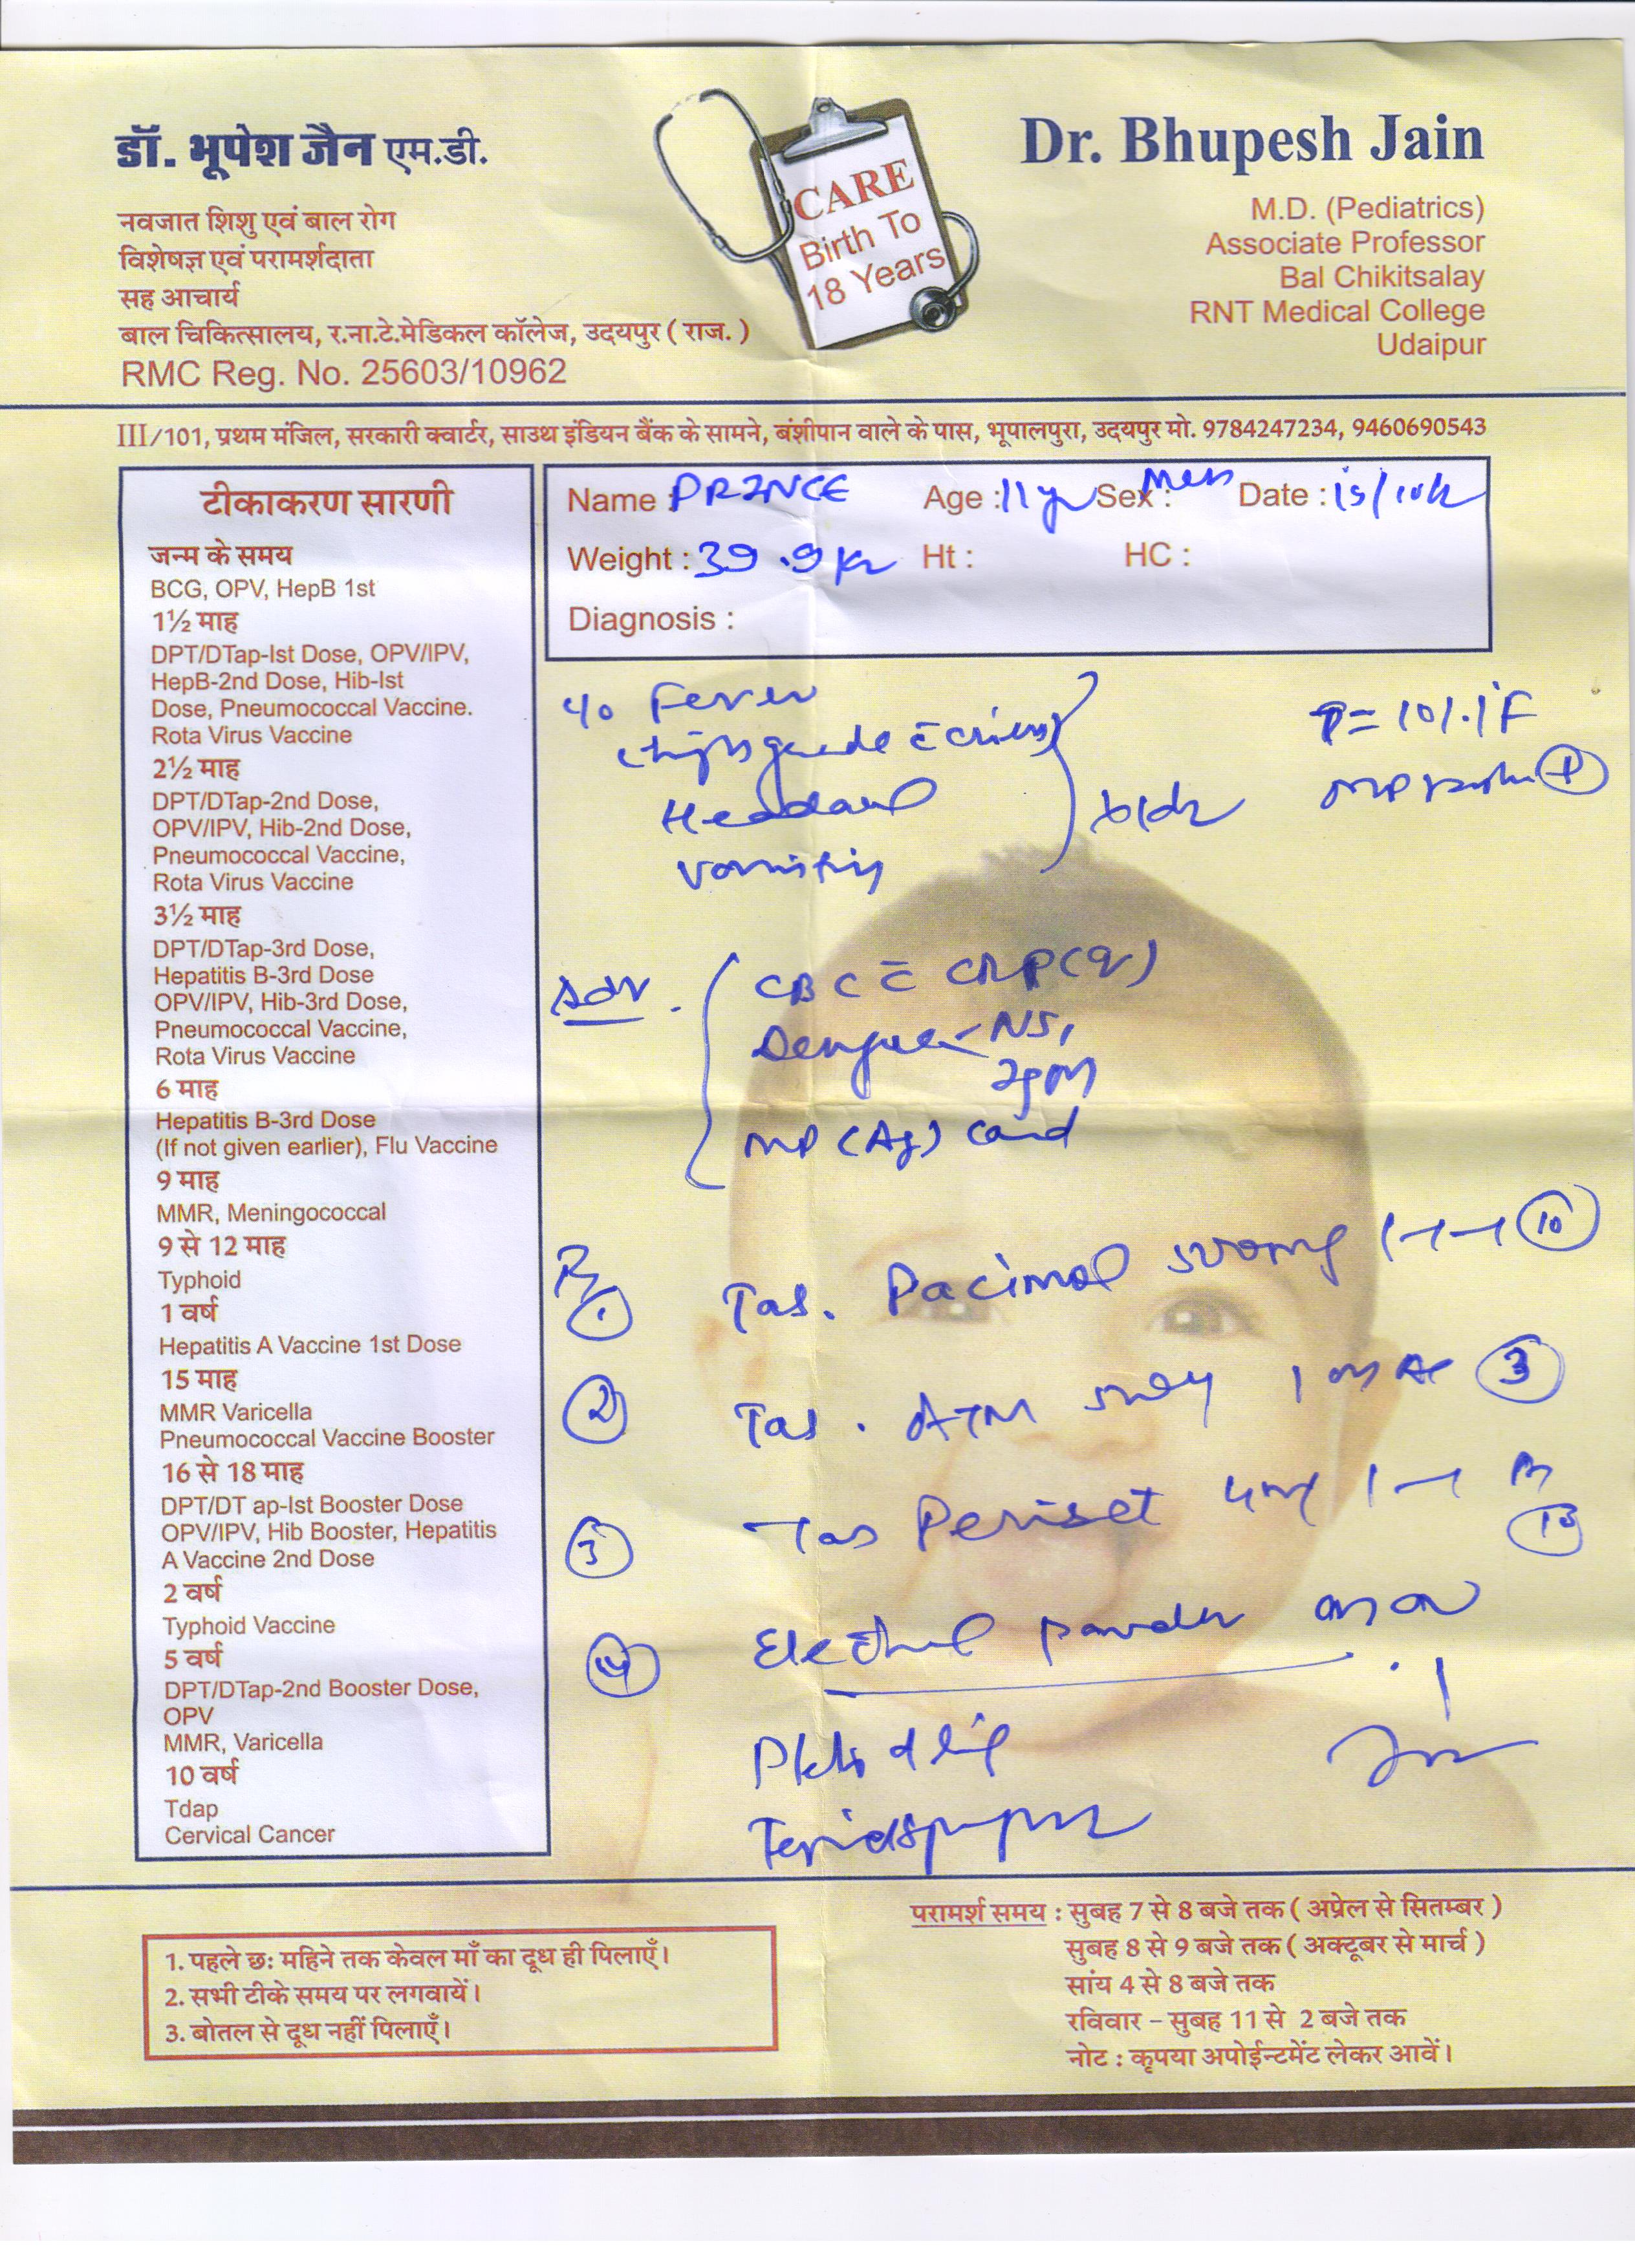 डॉ. भूपेश जैन एम.डी.
नवजात शिशु एवं बाल रोग
विशेषज्ञ एवं परामर्शदाता
सह आचार्य
बाल चिकित्सालय, र.ना.टे.मेडिकल कॉलेज, उदयपुर ( राज. )
RMC Reg. No. 25603/10962
CARE
Birth To
18 Years
Dr. Bhupesh Jain
M.D. (Pediatrics)
Associate Professor
Bal Chikitsalay
RNT Medical College
Udaipur
III/101, प्रथम मंजिल, सरकारी क्वार्टर, साउथ इंडियन बैंक के सामने, बंशीपान वाले के पास, भूपालपुरा, उदयपुर मो. 9784247234, 9460690543
टीकाकरण सारणी
जन्म के समय
BCG, OPV, HepB 1st
1½ माह
DPT/DTap-Ist Dose, OPV/IPV,
HepB-2nd Dose, Hib-Ist
Dose, Pneumococcal Vaccine.
Rota Virus Vaccine
2½ माह
DPT/DTap-2nd Dose,
OPV/IPV, Hib-2nd Dose,
Pneumococcal Vaccine,
Rota Virus Vaccine
3½ माह
DPT/DTap-3rd Dose,
Hepatitis B-3rd Dose
OPV/IPV, Hib-3rd Dose,
Pneumococcal Vaccine,
Rota Virus Vaccine
6 माह
Hepatitis B-3rd Dose
(If not given earlier), Flu Vaccine
9 माह
MMR, Meningococcal
9 से 12 माह
Typhoid
1 वर्ष
Hepatitis A Vaccine 1st Dose
15 माह
MMR Varicella
Pneumococcal Vaccine Booster
16 से 18 माह
DPT/DT ap-Ist Booster Dose
OPV/IPV, Hib Booster, Hepatitis
A Vaccine 2nd Dose
2 वर्ष
Typhoid Vaccine
5 वर्ष
DPT/DTap-2nd Booster Dose,
OPV
MMR, Varicella
10 वर्ष
Tdap
Cervical Cancer
Name : PRINCE Age : 11 yr Sex : Date :
Weight : 39.9 Kg Ht : HC :
Diagnosis :
c/o Fever
(high grade c̄ chills)
Headache
vomiting
T= 101.1°F
Adv.
CBC c̄ CRP(q)
Dengue - NS1
IgM
MP (Ag) card
Rx
1 Tab. Pacimol 500mg 1-1-1 10
2 Tab. ATM 1 3
3 Tab Periset 4mg 1-1 10
4 Electral powder
परामर्श समय : सुबह 7 से 8 बजे तक ( अप्रेल से सितम्बर )
सुबह 8 से 9 बजे तक ( अक्टूबर से मार्च )
सांय 4 से 8 बजे तक
रविवार – सुबह 11 से 2 बजे तक
नोट : कृपया अपोईन्टमेंट लेकर आवें।
1. पहले छः महिने तक केवल माँ का दूध ही पिलाएँ।
2. सभी टीके समय पर लगवायें।
3. बोतल से दूध नहीं पिलाएँ।